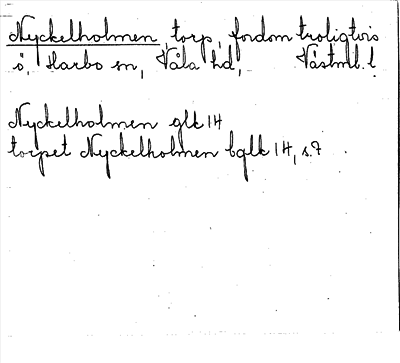 Nyckelholmen, torp, fordom troligtvis
ö, Harbo sn, Våla hd, Västml. l.
Nyckelholmen glk 14
torpet Nyckelholmen bglk 14, s. 7